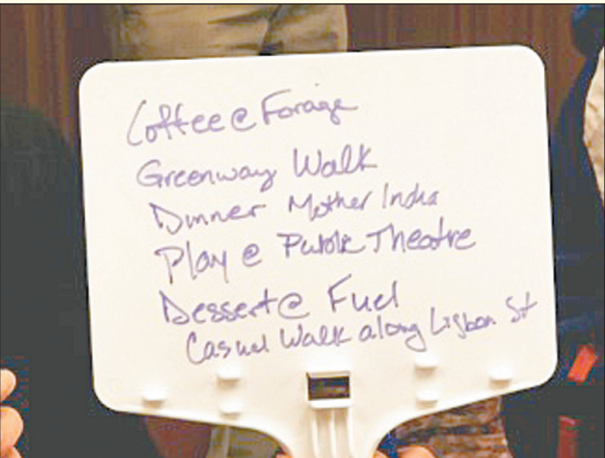 Coffee @ Forage
Greenway Walk
Dinner Mother India
Play @ Public Theatre
Dessert @ Fuel
Casual Walk along Lisbon St